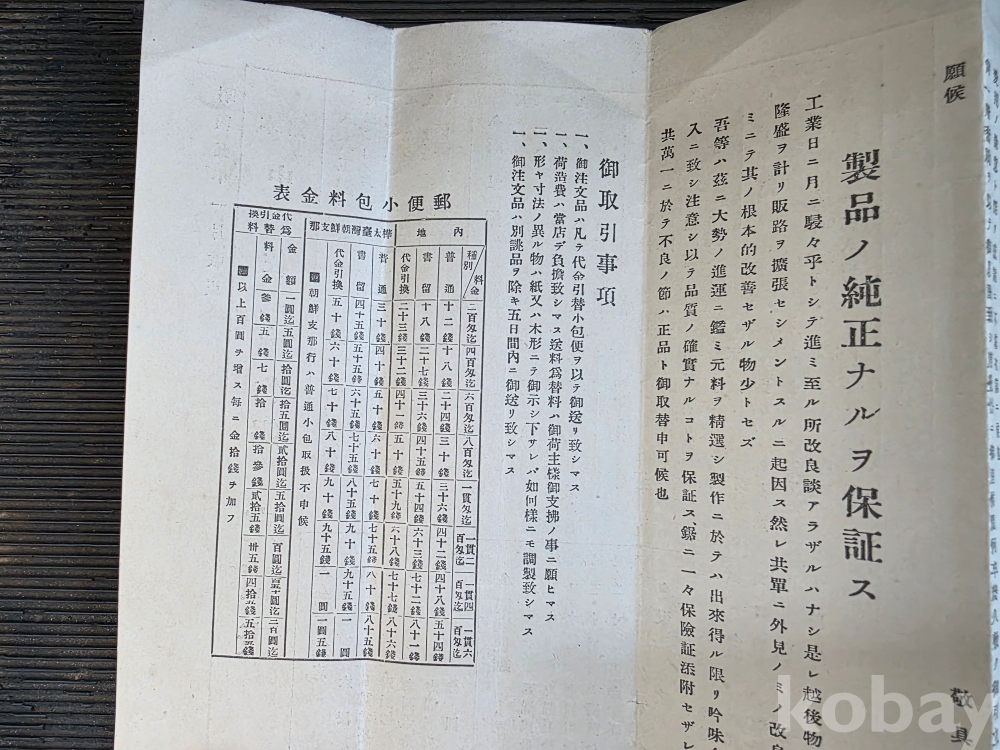 願候
敬具
製品ノ純正ナルヲ保証ス
工業日ニ月ニ駸々乎トシテ進ミ至ル所改良談アラザルハナシ是レ越後物
隆盛ヲ計リ販路ヲ擴張セシメントスルニ起因ス然レ共單ニ外見ノミノ改良
ミニテ其ノ根本的改善セザル物少トセズ
吾等ハ茲ニ大勢ノ進運ニ鑑ミ元料ヲ精選シ製作ニ於テハ出來得ル限リ吟味
入ニ致シ注意シ以テ品質ノ確實ナルコトヲ保証ス鋸ニ一々保險証添附セザレ
共萬一ニ於テ不良ノ節ハ正品ト御取替申可候也
御取引事項
一、御注文品ハ凡テ代金引替小包便ヲ以テ御送リ致シマス
一、荷造費ハ當店デ負擔致シマス送料爲替料ハ御荷主樣御支拂ノ事ニ願ヒマス
一、形ヤ寸法ノ異ル物ハ紙又ハ木形ニテ御示シ下サレバ如何樣ニモ調製致シマス
一、御注文品ハ別誂品ヲ除キ五日間内ニ御送リ致シマス
郵便小包料金表
料金 種別 二百匁迄 四百匁迄 六百匁迄 八百匁迄 一貫匁迄 一貫二百匁迄 一貫四百匁迄 一貫六百匁迄
内地 普通 十二錢 十八錢 二十四錢 三十錢 三十六錢 四十二錢 四十八錢 五十四錢
書留 十八錢 二十七錢 三十六錢 四十五錢 五十四錢 六十三錢 七十二錢 八十一錢
代金引換 二十三錢 三十二錢 四十一錢 五十錢 五十九錢 六十八錢 七十七錢 八十六錢
樺太臺灣朝鮮支那 普通 三十錢 四十錢 五十錢 六十錢 七十錢 七十五錢 八十錢 八十五錢
書留 四十五錢 五十五錢 六十五錢 七十五錢 八十五錢 九十錢 九十五錢 一圓
代金引換 五十錢 六十錢 七十錢 八十錢 九十錢 九十五錢 一圓 一圓五錢
朝鮮支那行ハ普通小包取扱不申候
代金引換爲替料 金額 一圓迄 五圓迄 拾圓迄 拾五圓迄 貳拾圓迄 五拾圓迄 百圓迄 百五十圓迄 二百圓迄
料金 參錢 五錢 七錢 拾錢 拾參錢 貳拾五錢 卅五錢 四拾五錢 五拾五錢
以上百圓ヲ增ス每ニ金拾錢ヲ加フ
kobay